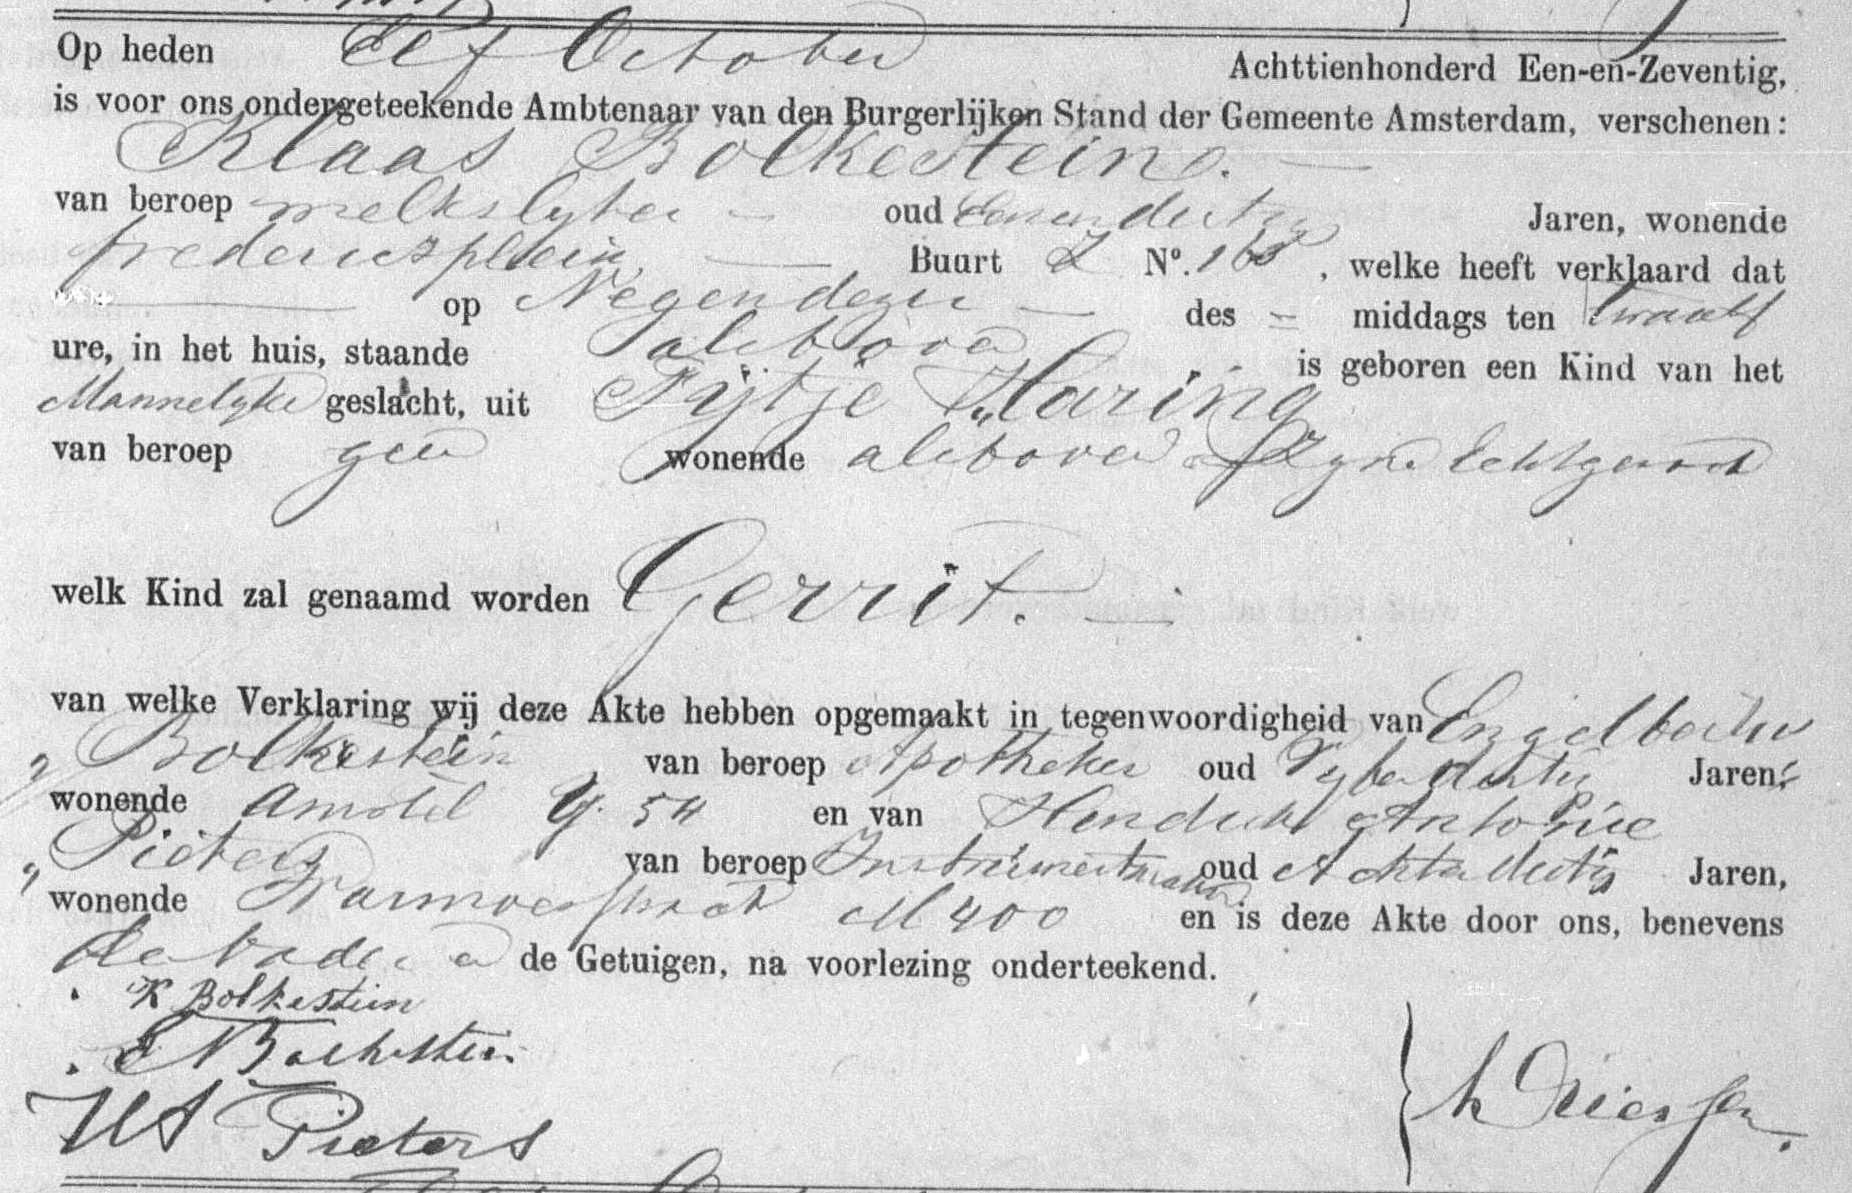 Op heden Elf October Achttienhonderd Een-en-Zeventig,
is voor ons ondergeteekende Ambtenaar van den Burgerlijken Stand der Gemeente Amsterdam, verschenen:
Klaas Bolkestein.
van beroep melkslyter oud Eenendertig Jaren, wonende
frederiksplein Buurt Z No. 168, welke heeft verklaard dat
op Negen dezer des middags ten twaalf
ure, in het huis, staande alsboven is geboren een Kind van het
Mannelyke geslacht, uit Fijtje Haring
van beroep geen wonende alsboven Zyne Echtgenoot
welk Kind zal genaamd worden Gerrit.
van welke Verklaring wij deze Akte hebben opgemaakt in tegenwoordigheid van Engelbertus
Bolkestein van beroep Apotheker oud Vyfendertig Jaren,
wonende Amstel 54 en van Hendrik Antonie
Pieters van beroep Instrumentmaker oud Achtendertig Jaren,
wonende Warmoesstraat M 400 en is deze Akte door ons, benevens
de vader en de Getuigen, na voorlezing onderteekend.
K Bolkestein
E Bolkestein
HA Pieters